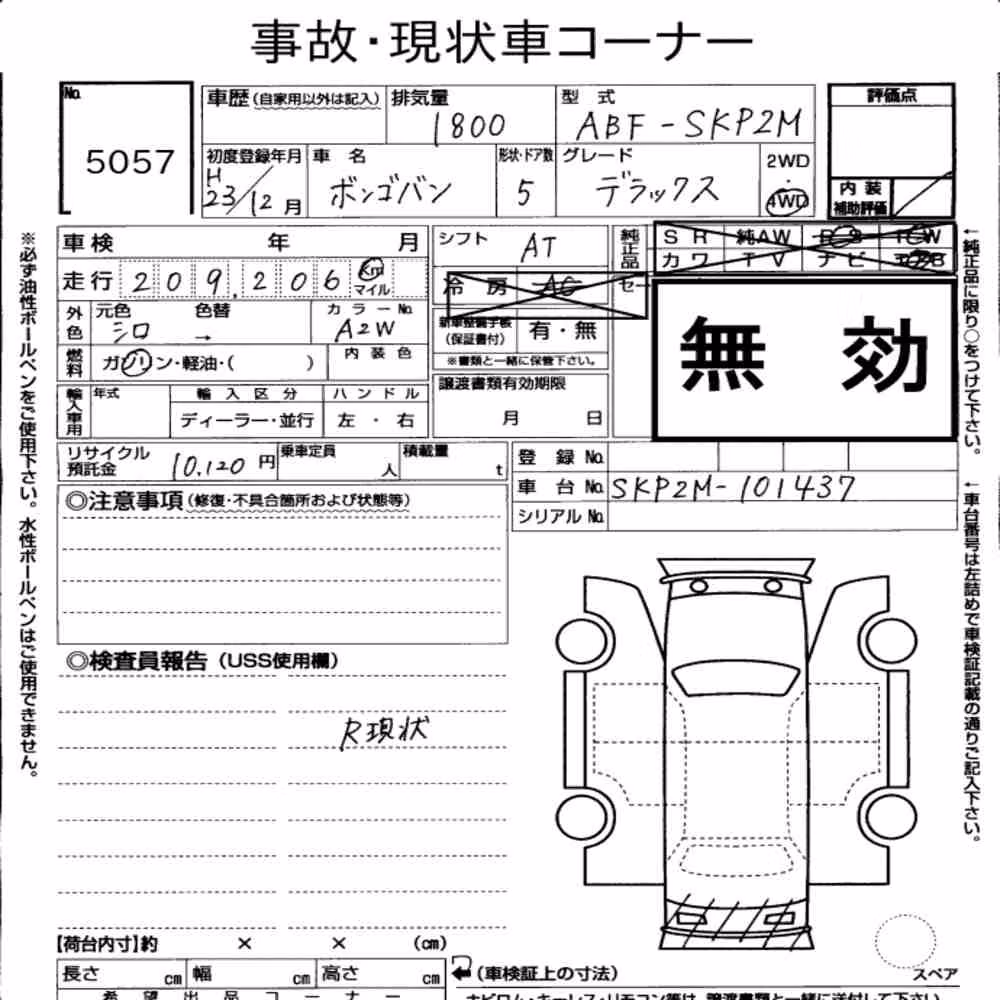 事故・現状車コーナー
No. 5057
車歴(自家用以外は記入) 排気量 1800 型式 ABF-SKP2M
評価点
初度登録年月 H23/12月 車名 ボンゴバン 形状・ドア数 5 グレード デラックス 2WD・4WD
内装補助評価
車検 年 月
シフト AT
純正品 SR 純AW PS
カワ TV ナビ
走行 209,206 Km マイル
冷房 AC
外色 元色 シロ 色替 → カラーNo. A2W
新車整備手帳(保証書付) 有・無
※書類と一緒に保管下さい。
無効
燃料 ガソリン・軽油・( ) 内装色
譲渡書類有効期限 月 日
輸入車用 年式 輸入区分 ディーラー・並行 ハンドル 左・右
リサイクル預託金 10,120円 乗車定員 人 積載量 t
登録No.
車台No. SKP2M-101437
シリアルNo.
◎注意事項(修復・不具合箇所および状態等)
◎検査員報告(USS使用欄)
R現状
【荷台内寸】約 × × (cm)
長さ cm 幅 cm 高さ cm
(車検証上の寸法)
スペア
希望出品コーナー
ナビロム・キーレス・リモコン等は、譲渡書類と一緒に送付して下さい
※必ず油性ボールペンをご使用下さい。水性ボールペンはご使用できません。
←純正品に限り○をつけて下さい。
←車台番号は左詰めで車検証記載の通りご記入下さい。